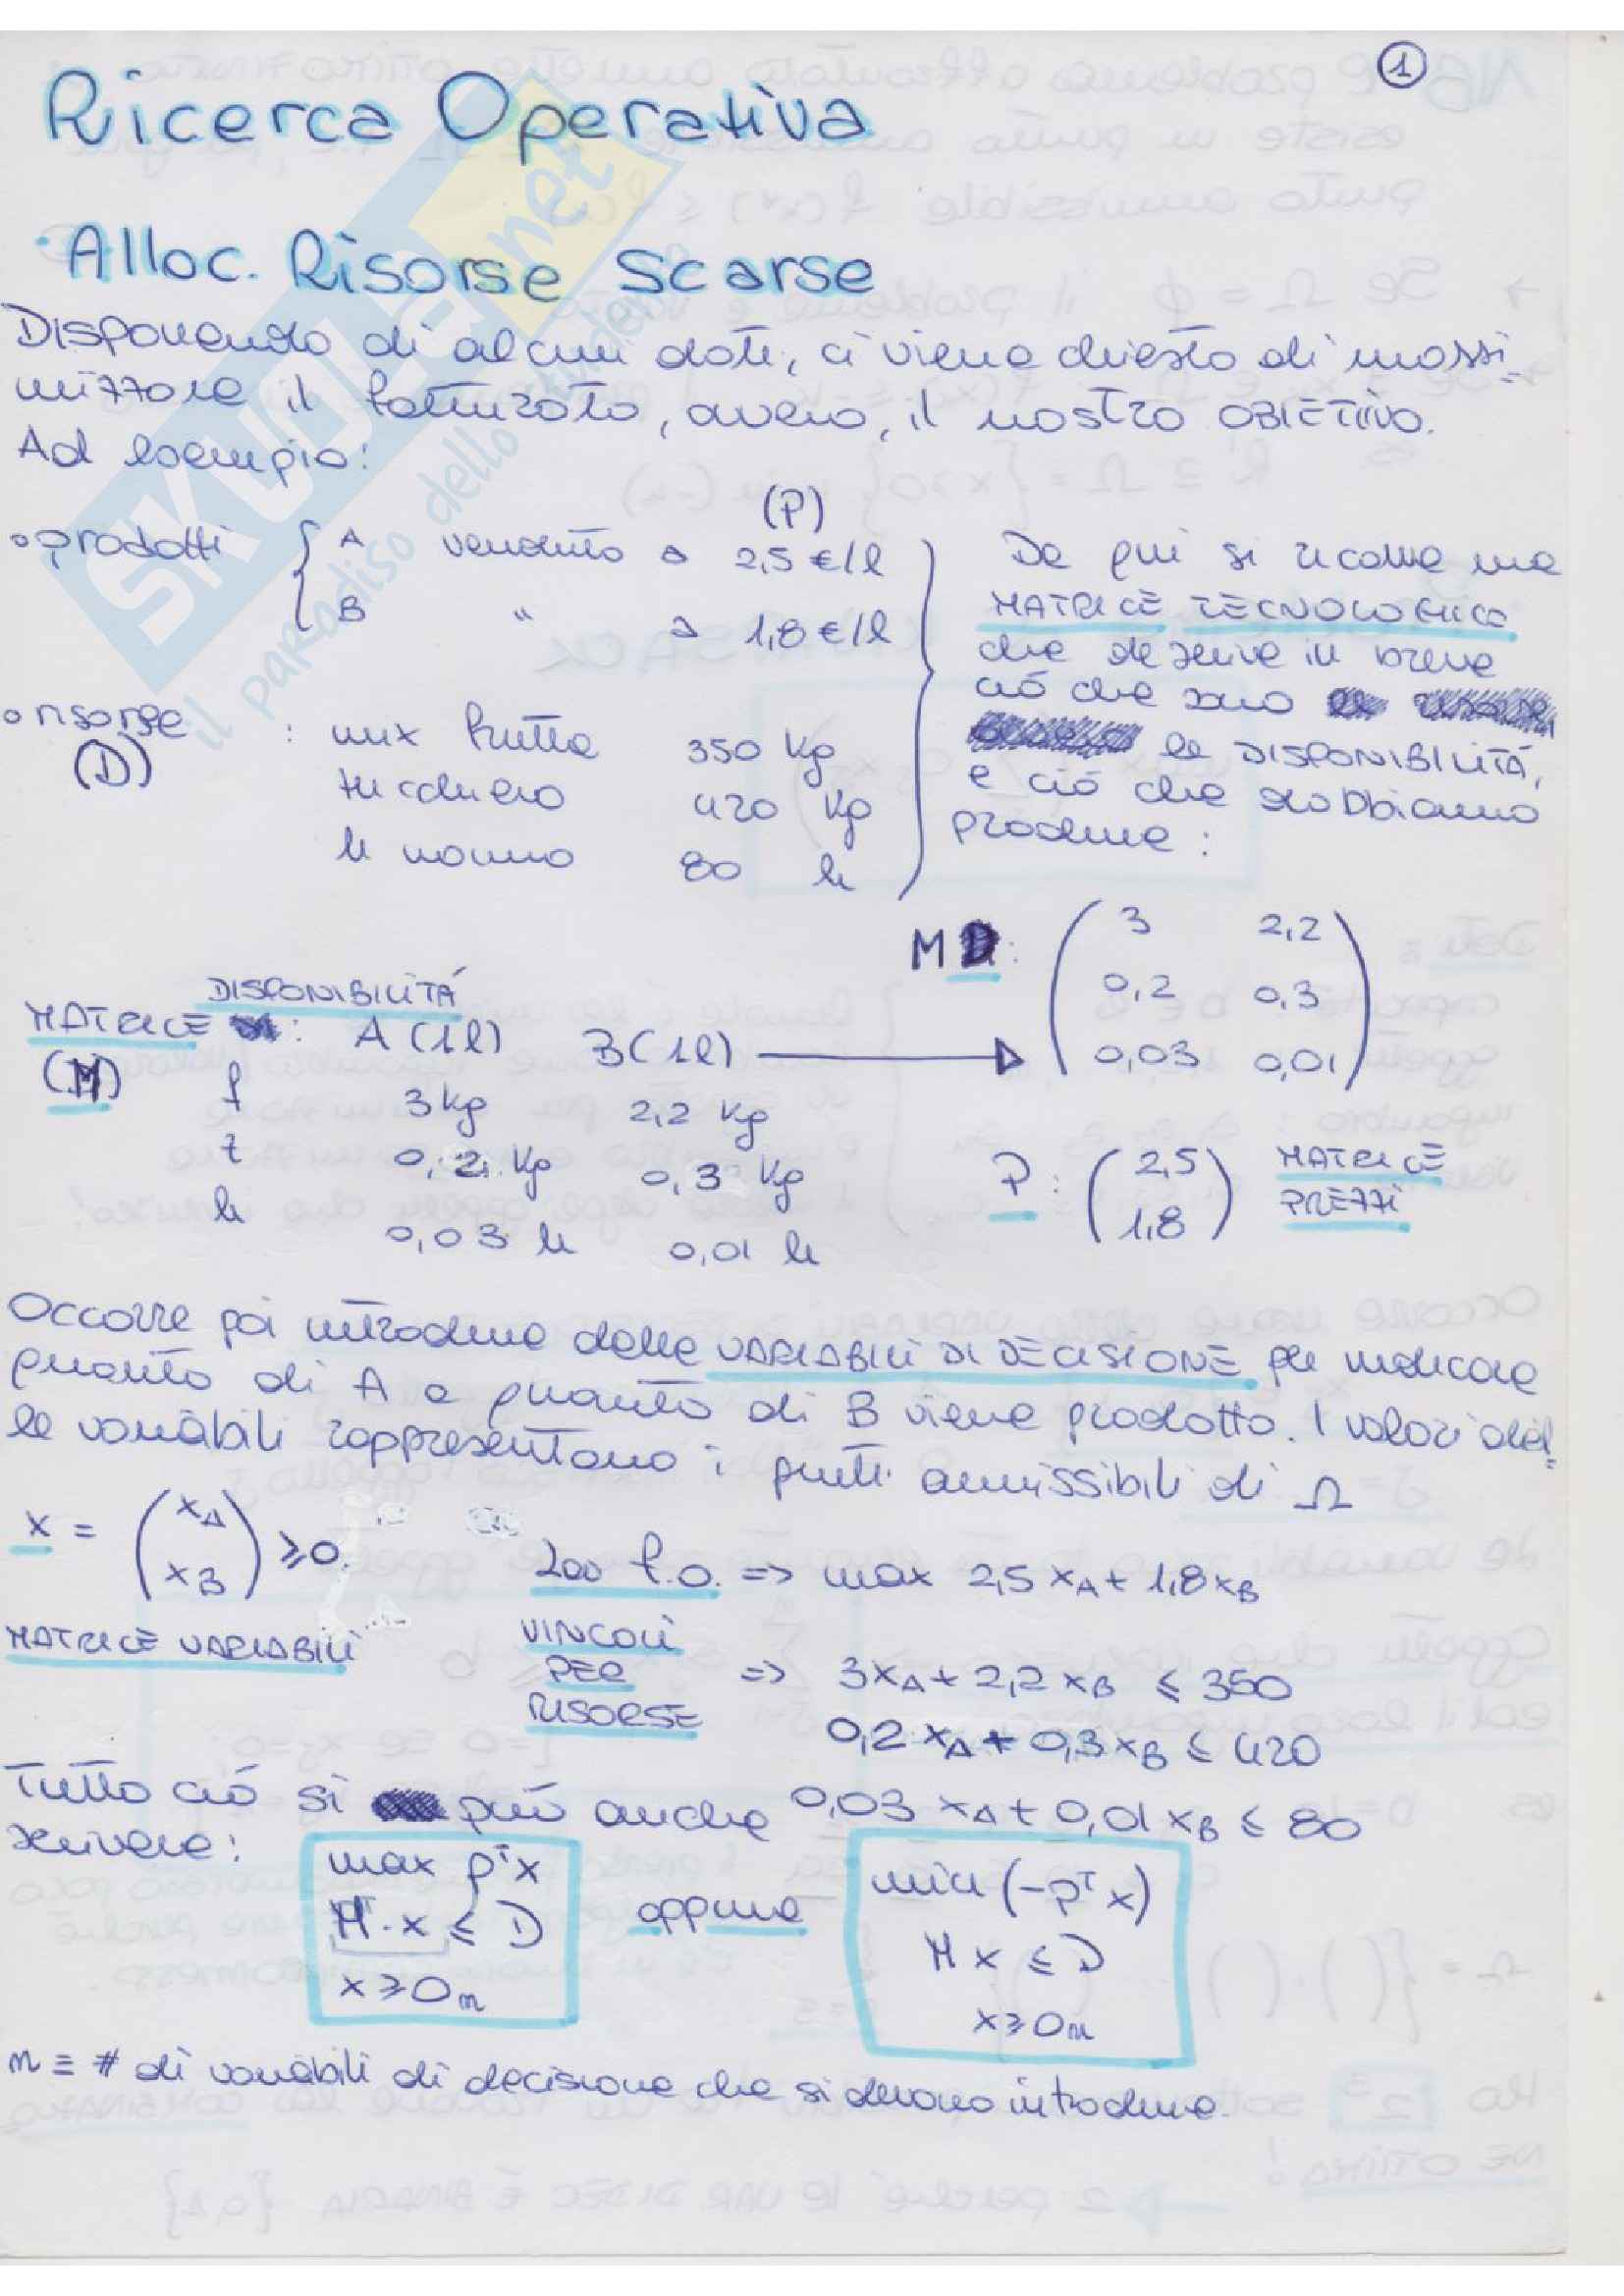 1
Ricerca Operativa
· Alloc. Risorse Scarse
Disponendo di alcuni dati, ci viene chiesto di massi=
mizzare il fatturato, ovvero, il nostro OBIETTIVO.
Ad esempio:
(P)
o prodotti { A venduto a 2,5 €/l
B " a 1,8 €/l
o risorse : mix frutta 350 Kg
(D) zucchero 420 Kg
h uomo 80 h
Da qui si ricava una
MATRICE TECNOLOGICA
che descrive in breve
ciò che sono
le DISPONIBILITÁ,
e ciò che dobbiamo
produrre :
M : ( 3 2,2
0,2 0,3
0,03 0,01 )
DISPONIBILITÁ
MATRICE : A (1l) B (1l)
(M) f 3 kg 2,2 Kg
z 0,2 Kg 0,3 Kg
h 0,03 h 0,01 h
P : ( 2,5
1,8 ) MATRICE
PREZZI
Occorre poi introdurre delle VARIABILI DI DECISIONE per indicare
quanto di A e quanto di B viene prodotto. I valori del=
le variabili rappresentano i punti ammissibili di Ω
x = ( xA
xB ) ≥ 0.
MATRICE VARIABILI
f.o. => max 2,5 xA + 1,8 xB
VINCOLI
PER
RISORSE
=> 3xA + 2,2 xB ≤ 350
0,2 xA + 0,3 xB ≤ 420
0,03 xA + 0,01 xB ≤ 80
Tutto ciò si può anche
scrivere:
max pᵀx
Mᵀ·x ≤ D
x ≥ 0n
oppure
min (-pᵀ x)
M x ≤ D
x ≥ 0n
n ≡ # di variabili di decisione che si devono introdurre.
SKUOLA.net
il paradiso dello studente